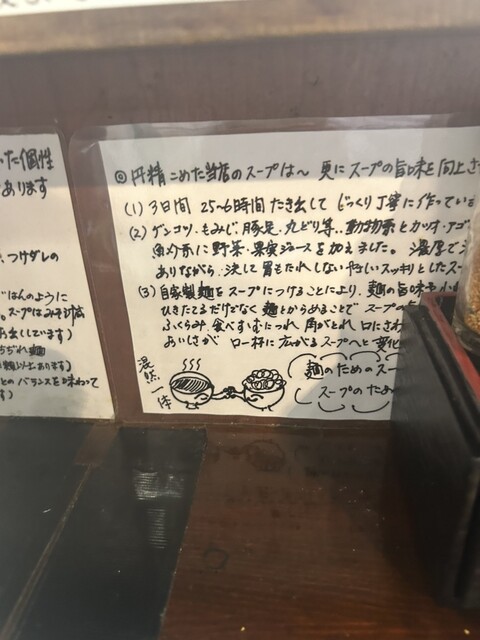 った個性
あります
つけダレの
ごはんのように
スープはみそ汁
出しています)
ちぢれ麺
以上あります)
とのバランスを味わって
す)
◎円精こめた当店のスープは〜 更にスープの旨味を向上さ
(1) 3日間 25〜6時間 たき出して じっくり丁寧に作っている
(2) ゲンコツ・もみじ・豚足・丸どり等、動物系とカツオ・アゴ
魚介系に野菜・果実ジュースを加えました。濃厚で
ありながら、決して胃もたれしないやさしいスッキリとしたスー
(3) 自家製麺をスープにつけることにより、麺の旨味も
ひきたてるだけなく 麺とからめることで スープの
ふくらみ、食べすすむにつれ 角がとれ 口にさわ
おいしさが 口一杯に広がるスープへと変化
渾然一体
麺のためのスー
スープのため